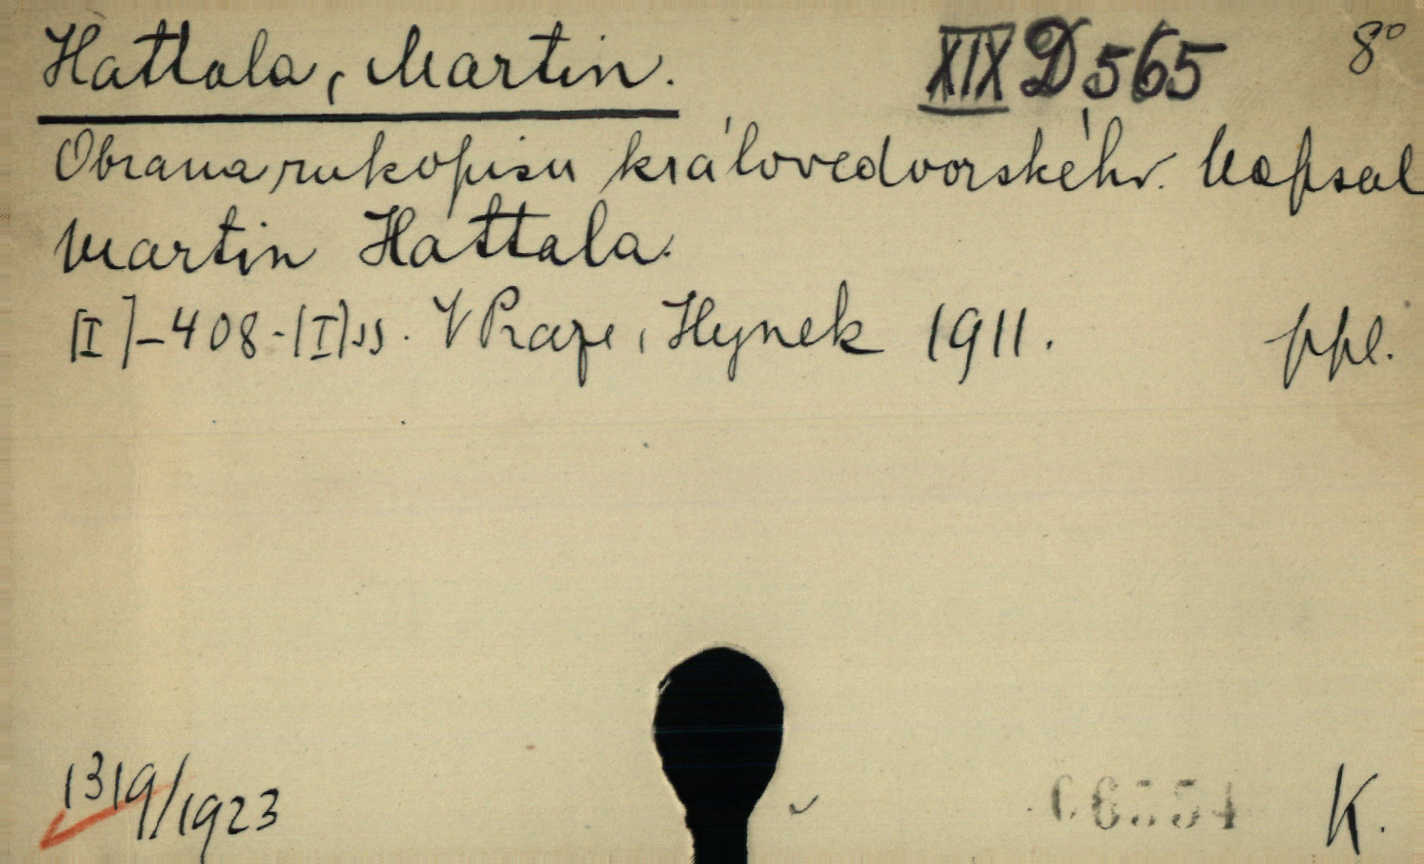 Hattala, Martin.
XIX D 565
8°
Obrana rukopisu královédvorského. Napsal
Martin Hattala.
[I]-408-[I] ss. V Praze, Hynek 1911.
ppl.
1319/1923
K.